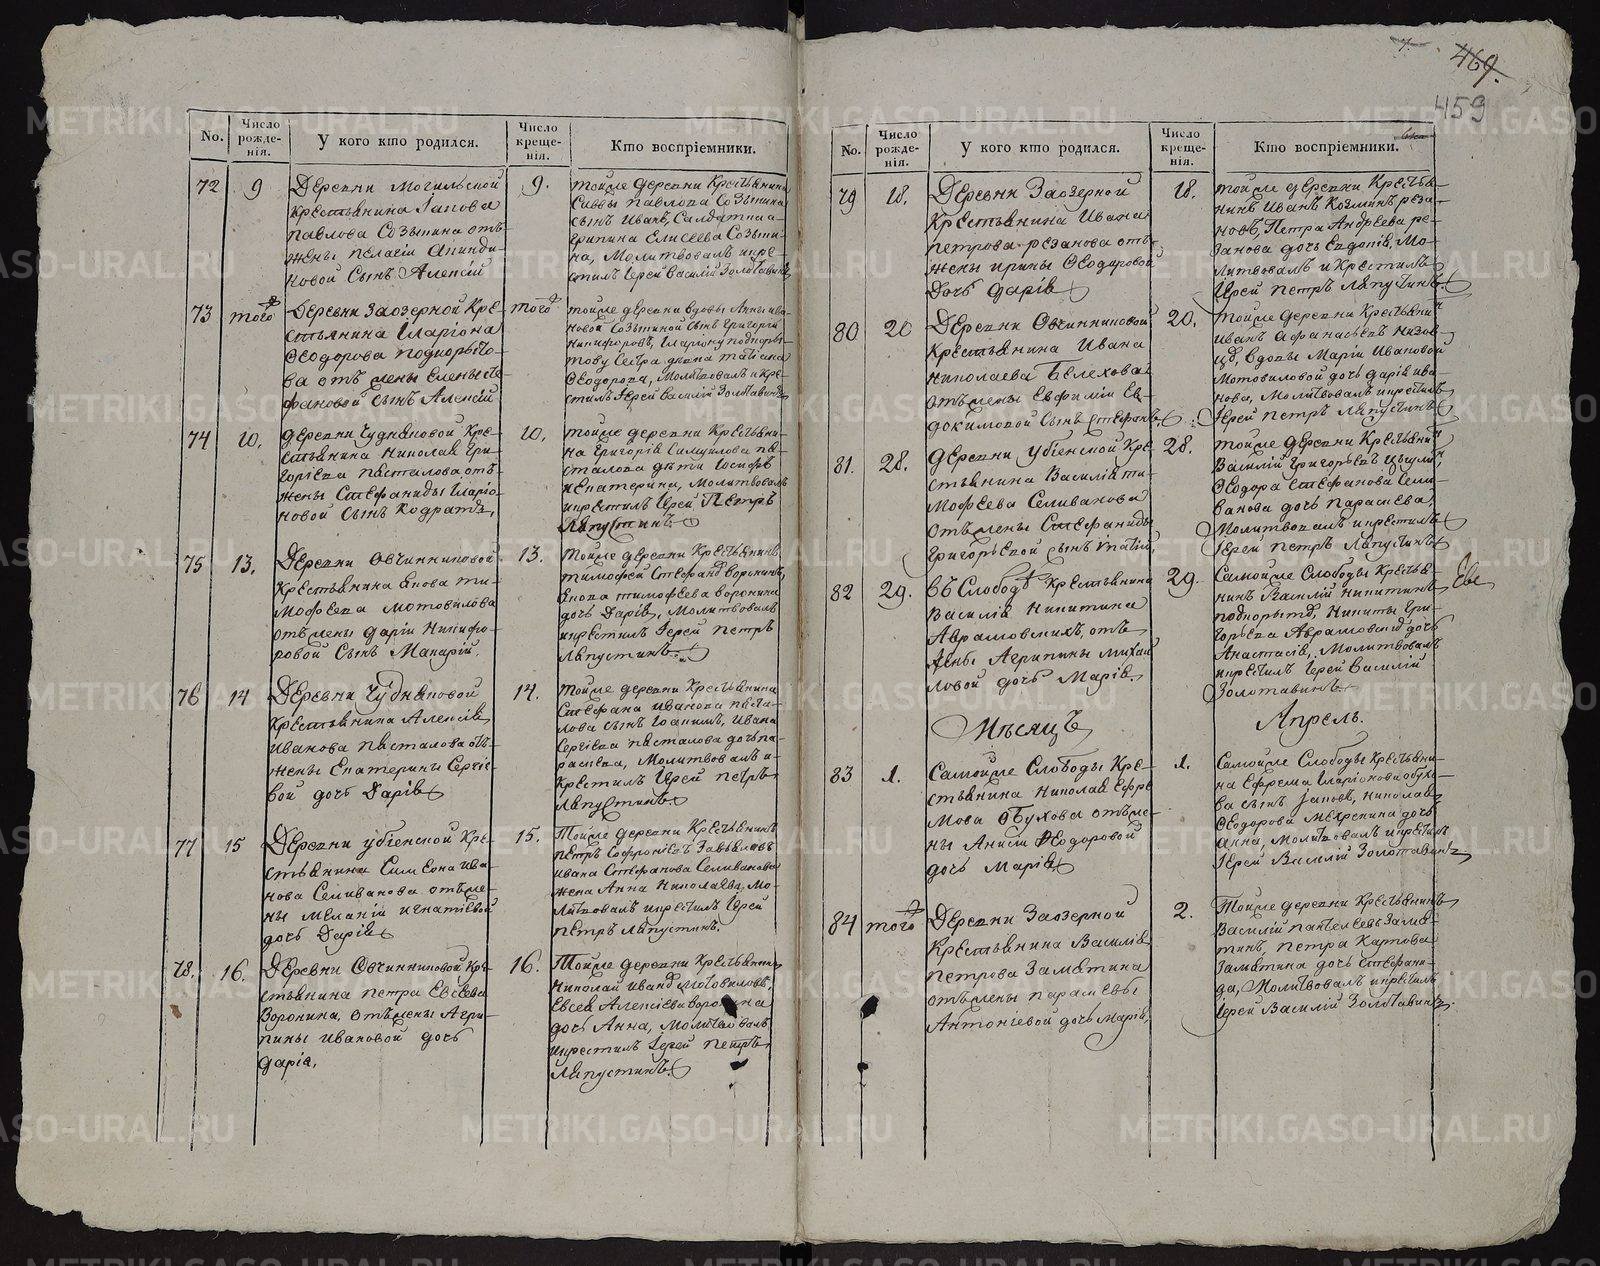 469.
459
No.
Число рожденія.
У кого кто родился.
Число крещенія.
Кто воспріемники.
72
9
Деревни Могильской
крестьянина Іакова
Павлова Созыкина отъ
жены Пелагіи
новой сынъ Алексій
9.
тойже деревни крестьянина
Саввы Павлова Созыкина
сынъ Иванъ, Солдатка а-
грипина Елисеева Созыки-
на, молитвовалъ и кре-
стилъ Іерей Василій Золотавинъ
73
того
Деревни Заозерной кре-
стьянина Иларіона
Ѳеодорова Подкоры́то-
ва отъ жены Елены Сте-
фановой сынъ Алексій
того
тойже деревни вдовы Анны ива-
новой Созыкиной сынъ Григорій
Никифоровъ, Подкоры-
тову сестра девка Татіана
Ѳеодорова, молитвовалъ и кре-
стилъ Іерей Василій Золотавинъ
74
10.
деревни Чудиновой кре-
стьянина Николая Гри-
горьева Пасталова отъ
жены Стефаниды Иларіо-
новой сынъ Кодратъ,
10.
тойже деревни крестьяни-
на Григорія Самуилова Па-
сталова дѣти Іосифъ
иЕкатерина, молитвовалъ
икрестилъ Іерей Петръ
Ляпустинъ
75
13.
Деревни Овчинниковой
крестьянина Якова Ти-
мофеева Мотовилова
отъ жены Даріи Никифо-
ровой сынъ Макарій.
13.
тойже деревни крестьянинъ
тимофей Стефановъ Воронинъ,
Якова Тимофеева Воронина
дочь Дарія, молитвовалъ
икрестилъ Іерей Петръ
Ляпустинъ.
76
14
Деревни Чудиновой
крестьянина Алексія
Иванова Пасталова отъ
жены Екатерины Сергіе-
вой дочь Дарія
14.
тойже деревни крестьянина
Стефана Иванова Паста-
лова сынъ Іоакимъ, Ивана
Сергіева Пасталова дочь Па-
расковья, молитвовалъ и
крестилъ Іерей Петръ
Ляпустинъ
77
15
Деревни Убіенской кре-
стьянина Симеона Ива-
нова Селиванова отъ же-
ны Меланіи Игнатіевой
дочь Дарія
15.
Тойже деревни крестьянинъ
Петръ Софроніевъ Завьяловъ
Ивана Стефанова Селиванова
жена Анна Николаева, мо-
литвовалъ икрестилъ Іерей
Петръ Ляпустинъ.
78.
16.
Деревни Овчинниковой кре-
стьянина Петра Евсеева
Воронина, отъ жены Агри-
пины Ивановой дочь
Дарія.
16.
Тойже деревни крестьянинъ
Николай Ивановъ Мотовиловъ,
Евсея Алексіева Воронина
дочь Анна, молитвовалъ
икрестилъ Іерей Петръ
Ляпустинъ.
No.
Число рожденія.
У кого кто родился.
Число крещенія.
Кто воспріемники.
79
18.
Деревни Заозерной
крестьянина Ивана
Петрова Резанова отъ
жены Ирины Ѳеодоровой
Дочь Дарія
18.
тойже деревни крестья-
нинъ Иванъ Козминъ Реза-
новъ, Петра Андреева Ре-
занова дочь Евдокія, мо-
литвовалъ и крестилъ
Іерей Петръ Ляпустинъ.
80
20
Деревни Овчинниковой
крестьянина Ивана
Николаева Белехова
отъ жены Евфиміи Ев-
докимовой сынъ Стефанъ
20.
тойже деревни крестьянинъ
Иванъ Афанасьевъ Низов-
цо, вдовы Маріи Ивановой
Мотовиловой дочь Дарія ива-
нова, молитвовалъ икрестилъ
Іерей Петръ Ляпустинъ
81.
28.
деревни Убіенской кре-
стьянина Василія ти-
мофеева Селиванова
отъ жены Стефаниды
Григорьевой сынъ Ипатій,
28.
тойже деревни крестьянинъ
Василій Григорьевъ
Ѳеодора Стефанова Сели-
ванова дочь Парасковья
молитвовалъ икрестилъ
Іерей Петръ Ляпустинъ
82
29.
въ Слободѣ крестьянина
Василія Никитина
Аврамовскихъ, отъ
жены Агрипины Михай
ловой дочь Марія,
29.
Самойже Слободы крестья-
нинъ Василій Никитинъ
Подкорытовъ, Никиты Гри-
горьева дочь
Анастасія, молитвовалъ
икрестилъ Іерей Василій
Золотавинъ
Мѣсяцъ
Апрель.
83
1.
Самойже Слободы кре-
стьянина Николая Ефре-
мова Обухова отъ же-
ны Анисьи Ѳеодоровой
дочь Марія,
1.
Самойже Слободы крестьяни-
на Ефрема Иларіонова Обухо-
ва сынъ Іаковъ, Николая
Ѳеодорова Мехренина дочь
Анна, молитвовалъ икрестилъ
Іерей Василій Золотавинъ
84
того
Деревни Заозерной
Крестьянина Василія
Петрова Замятина
отъ жены Парасковьи
Антоніевой дочь Марія,
2.
Тойже деревни крестьянинъ
Василій Пантелеевъ Замя-
тинъ, Петра Карпова
Замятина дочь Стефани-
да, молитвовалъ икрестилъ
Іерей Василій Золотавинъ.
METRIKI.GASO-URAL.RU